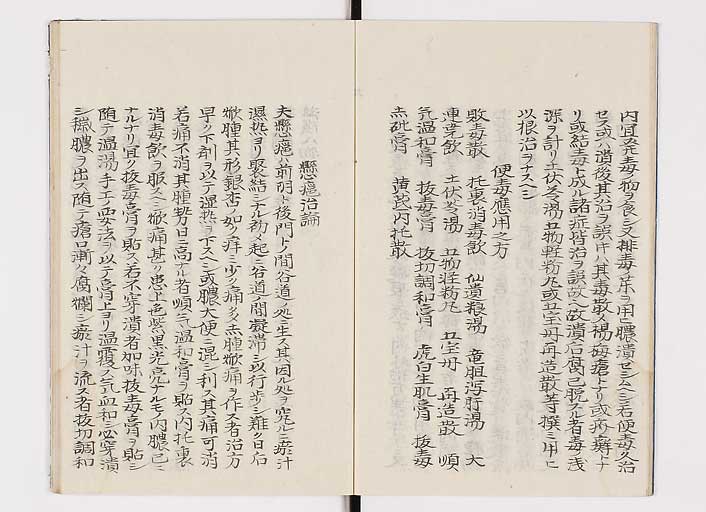 内宜発毒ノ物ヲ食シ又排毒ノ薬ヲ用ニ膿潰セシムヘシ若便毒久治
セス或ハ消後其治ヲ誤時ハ其毒散メ楊梅瘡トナリ或ハ痔癖トナ
リ或結毒ト成ル諸症皆治ヲ誤故ヘ故潰后腐已脱スル者毒ノ浅
深ヲ計リ土伏苓湯五物軽粉丸或五宝丹再造散等撰ミ用ヒ
以根治ヲナスヘシ
便毒應用之方
敗毒散 托裏消毒飲 仙遺粮湯 竜胆瀉肝湯 大
連莞飲 土伏苓湯 五物軽粉丸 五宝丹 再造散 順
気温和膏 抜毒膏 抜切調和膏 虎白生肌膏 抜毒
赤砒膏 黄芪内托散
懸癰治論
夫懸癰ハ前陰ト後門トノ間谷道ノ処ニ生ス其因ル処ヲ究ルニ瘀汁
濕熱ヨリ聚結シテル初メ起ニ谷道ノ間凝滞シ以行歩シ難ク日后
焮腫其形銀杏ノ如ク痒ミ少ク痛多赤腫焮痛ヲ作ス者治方
早ク下剤ヲ以テ湿熱ヲ下スヘシ或膿大便ニ混シ利ス其痛可消
若痛不消其腫勢日ニ高大ル者順気温和膏ヲ貼ス内托裏
消毒飲ヲ服ス焮痛甚ク患上色紫黒光亮ナルモノ内膿已ニ
ナルナリ宜ク抜毒膏ヲ貼ス若不穿潰者加味抜毒膏ヲ貼シ
随テ温湯手工ノ要法ヲ以テ膏上ヨリ温寝ス気血和シ必穿潰
シ穢膿ヲ出ス随テ瘡口漸々腐爛シ瘀汁ヲ流ス者抜切調和